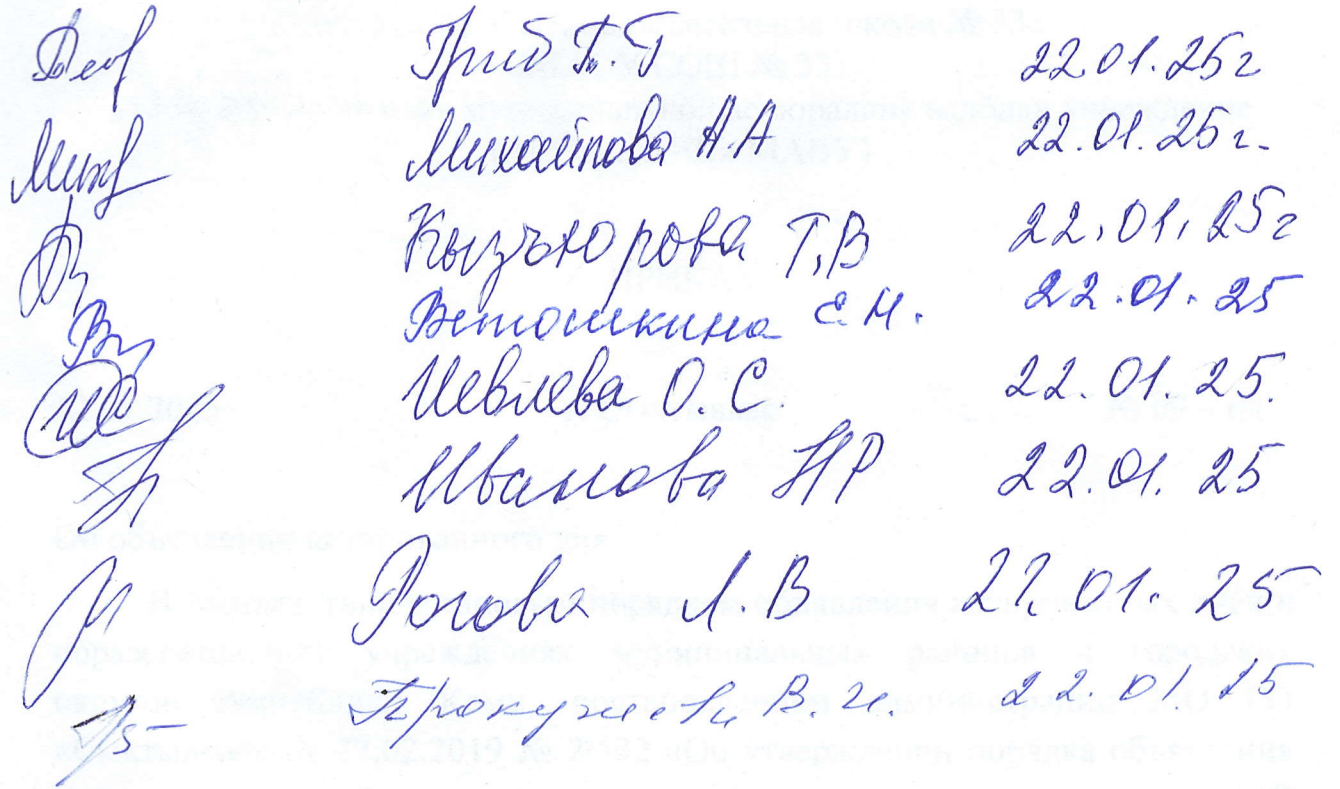 Гриб Т.Г 22.01.25г
Михайлова Н.А 22.01.25г.
Кызъюрова Т,В 22.01.25г
Ветошкина Е.Н. 22.01.25
Иевлева О.С 22.01.25.
Иванова НР 22.01.25
Рогова Л.В 22.01.25
В.И. 22.01.25